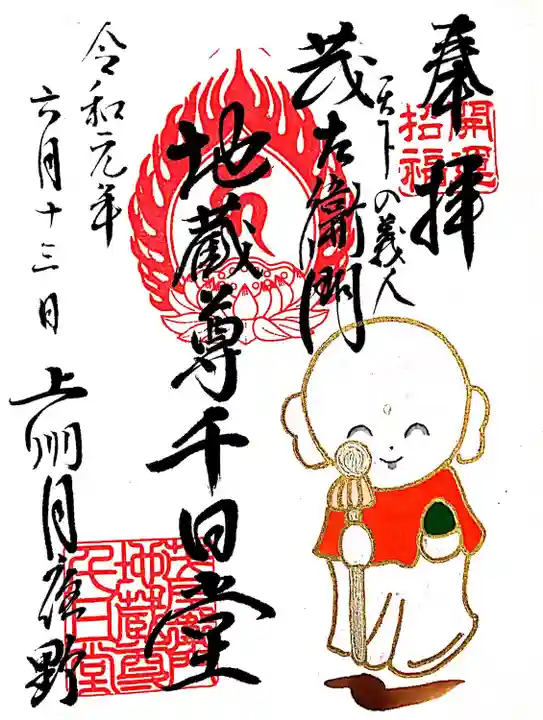 奉拝
開運
招福
天下の義人
茂左衛門
地蔵尊千日堂
令和元年
六月十三日
上州月夜野
茂左衛門
地蔵尊
千日堂